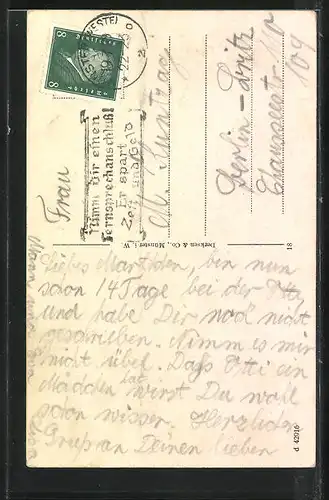 8 8
Nimm Dir einen
Fernsprechanschluß
Er spart
Zeit und Geld
Frau
Berlin-Britz
Chausseestr.
109
Derksen & Co., Münster i. W.
18
Liebes Martchen, bin nun
schon 14 Tage bei der Otti
und habe Dir noch nicht
geschrieben. Nimm es mir
nicht übel. Daß Otti ein
Mädchen hat wirst Du wohl
schon wissen. Herzlichen
Gruß an Deinen lieben
Mann und
d 42916